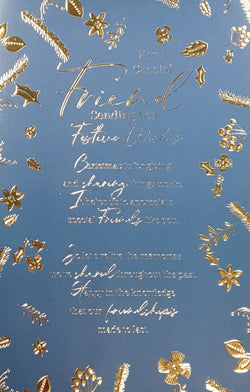 Special
Friend
Sending You
Festive Wishes
Christmas is for giving
and sharing
special Friends like you.
So let's relive the memories
we've shared throughout the past,
Happy in the knowledge
that our friendship's
made to last.